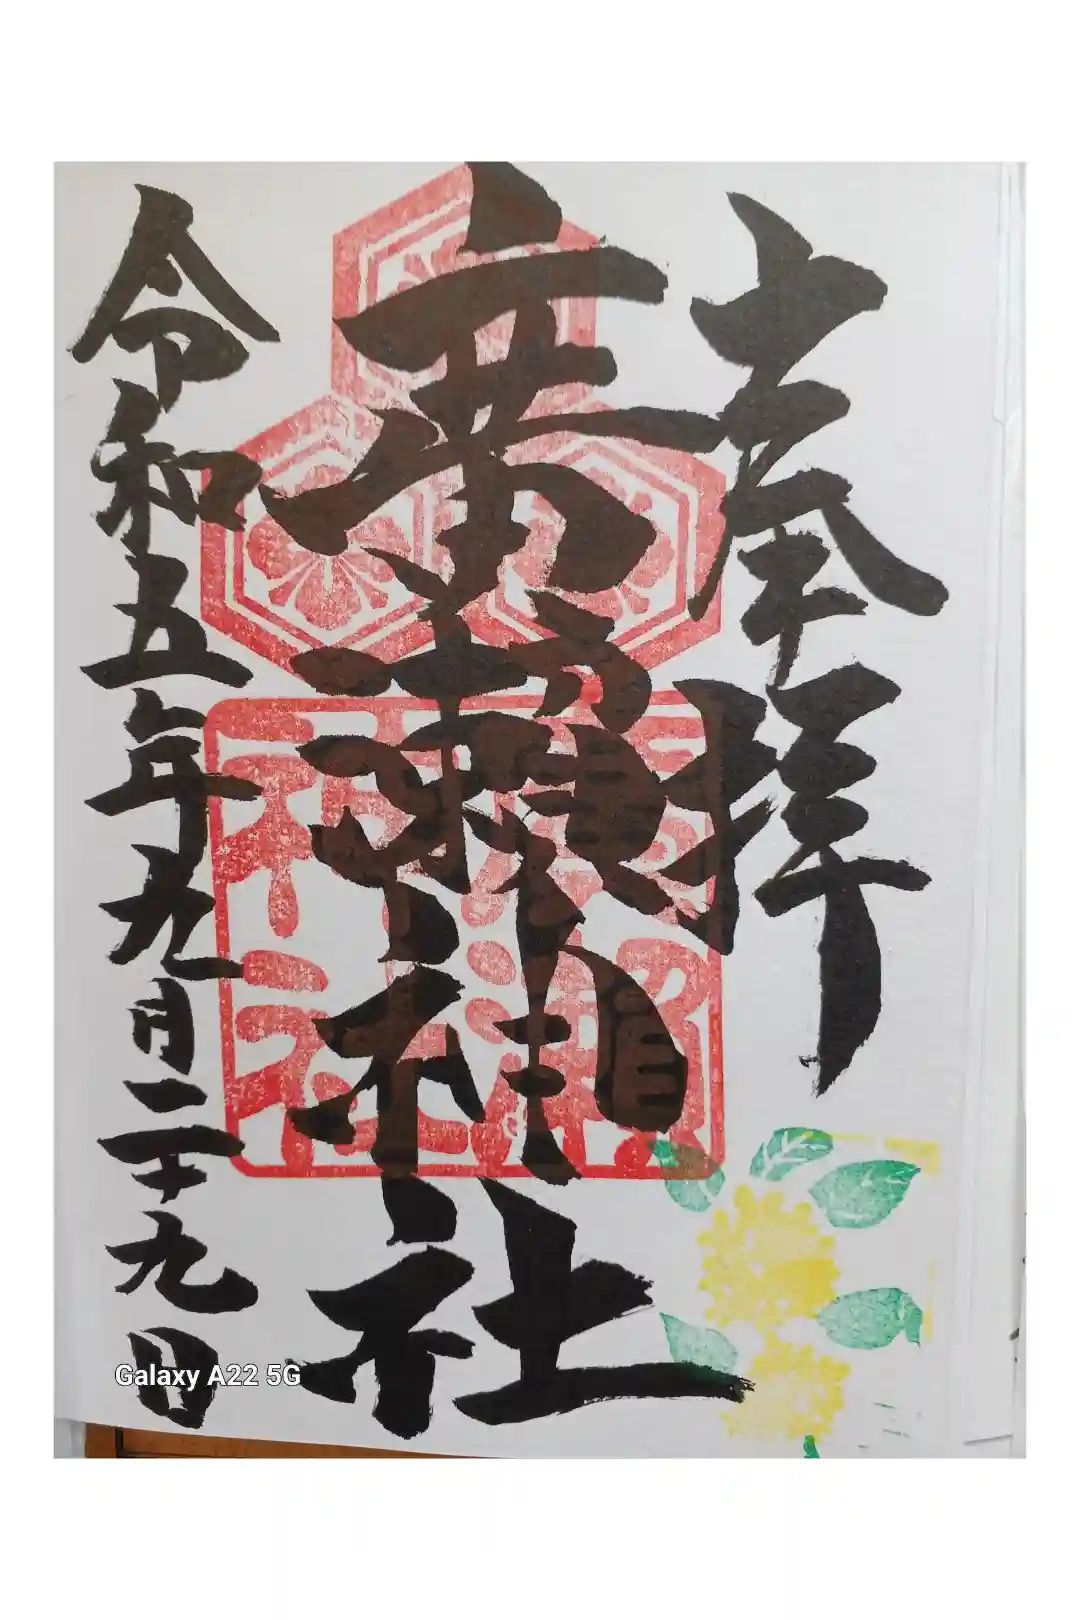 奉拝
神社
令和五年九月二十九日
神社
Galaxy A22 5G